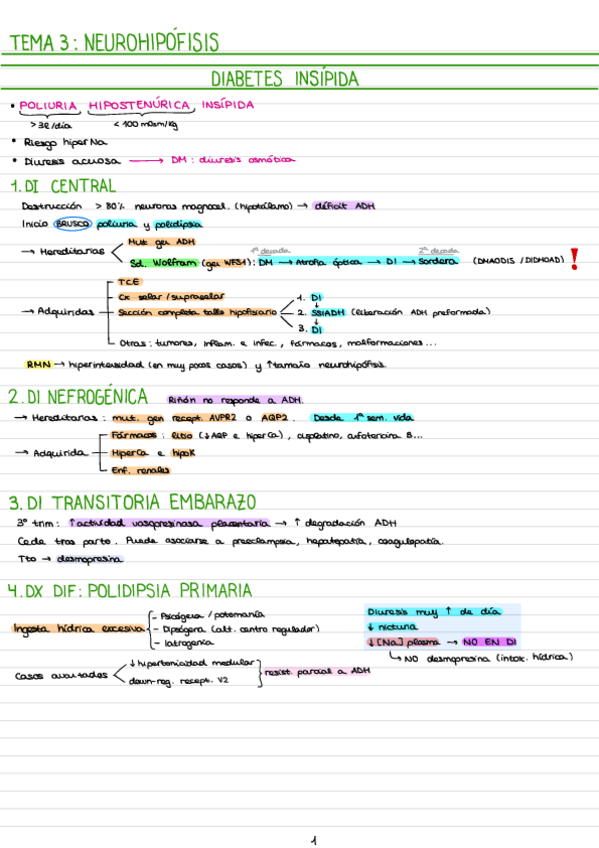 TEMA 3: NEUROHIPÓFISIS
DIABETES INSÍPIDA
• POLIURIA, HIPOSTENÚRICA, INSÍPIDA
>3l/día <100 mOsm/kg
• Riesgo hiperNa
• Diuresis acuosa → DM: diuresis osmótica
1. DI CENTRAL
Destrucción >80% neuronas magnocel. (hipotálamo) → déficit ADH
Inicio BRUSCO poliuria y polidipsia
→ Hereditarias
Mut. gen ADH
1ª década 2ª década
Sd. Wolfram (gen WFS1): DM → Atrofia óptica → DI → Sordera (DMAODIS / DIDMOAD) !
→ Adquiridas
TCE
Cx selar / supraselar
Sección completa tallo hipofisario
1. DI
2. SSIADH (liberación ADH preformada)
3. DI
Otras: tumores, inflam. e infec., fármacos, malformaciones...
RMN → hiperintensidad (en muy pocos casos) y ↑tamaño neurohipófisis.
2. DI NEFROGÉNICA Riñón no responde a ADH.
→ Hereditarias: mut. gen recept. AVPR2 o AQP2. Desde 1ª sem. vida
→ Adquirida
Fármacos: litio (↓AQP e hiperCa), cisplatino, anfotericina B...
HiperCa e hipoK
Enf. renales
3. DI TRANSITORIA EMBARAZO
3º trim: ↑actividad vasopresinasa placentaria → ↑ degradación ADH
Cede tras parto. Puede asociarse a preeclampsia, hepatopatía, coagulopatía.
Tto → desmopresina
4. DX DIF: POLIDIPSIA PRIMARIA
Ingesta hídrica excesiva
- Psicógena / potomanía
- Dipsógena (alt. centro regulador)
- Iatrogenia
Diuresis muy ↑ de día
↓ nicturia
↓[Na] plasma → NO EN DI
↳ NO desmopresina (intox. hídrica)
Casos avanzados
↓hipertonicidad medular
down-reg. recept. V2
resist. parcial a ADH
1